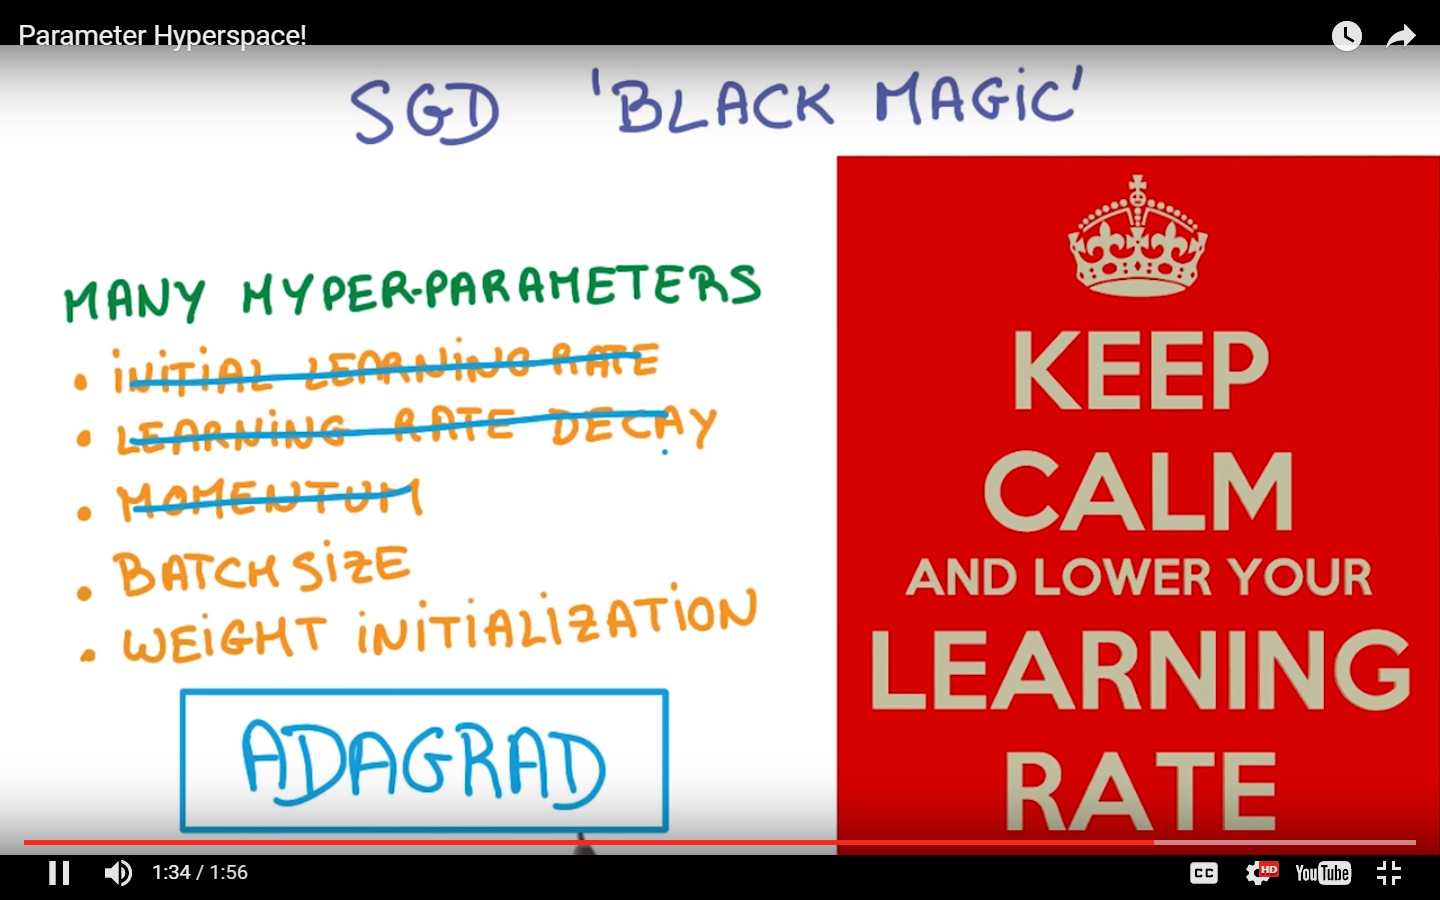 Parameter Hyperspace!
SGD 'BLACK MAGIC'
MANY HYPER-PARAMETERS
• INITIAL LEARNING RATE
• LEARNING RATE DECAY
• MOMENTUM
• BATCH SIZE
• WEIGHT INITIALIZATION
ADAGRAD
KEEP
CALM
AND LOWER YOUR
LEARNING
RATE
1:34 / 1:56
CC
HD
YouTube